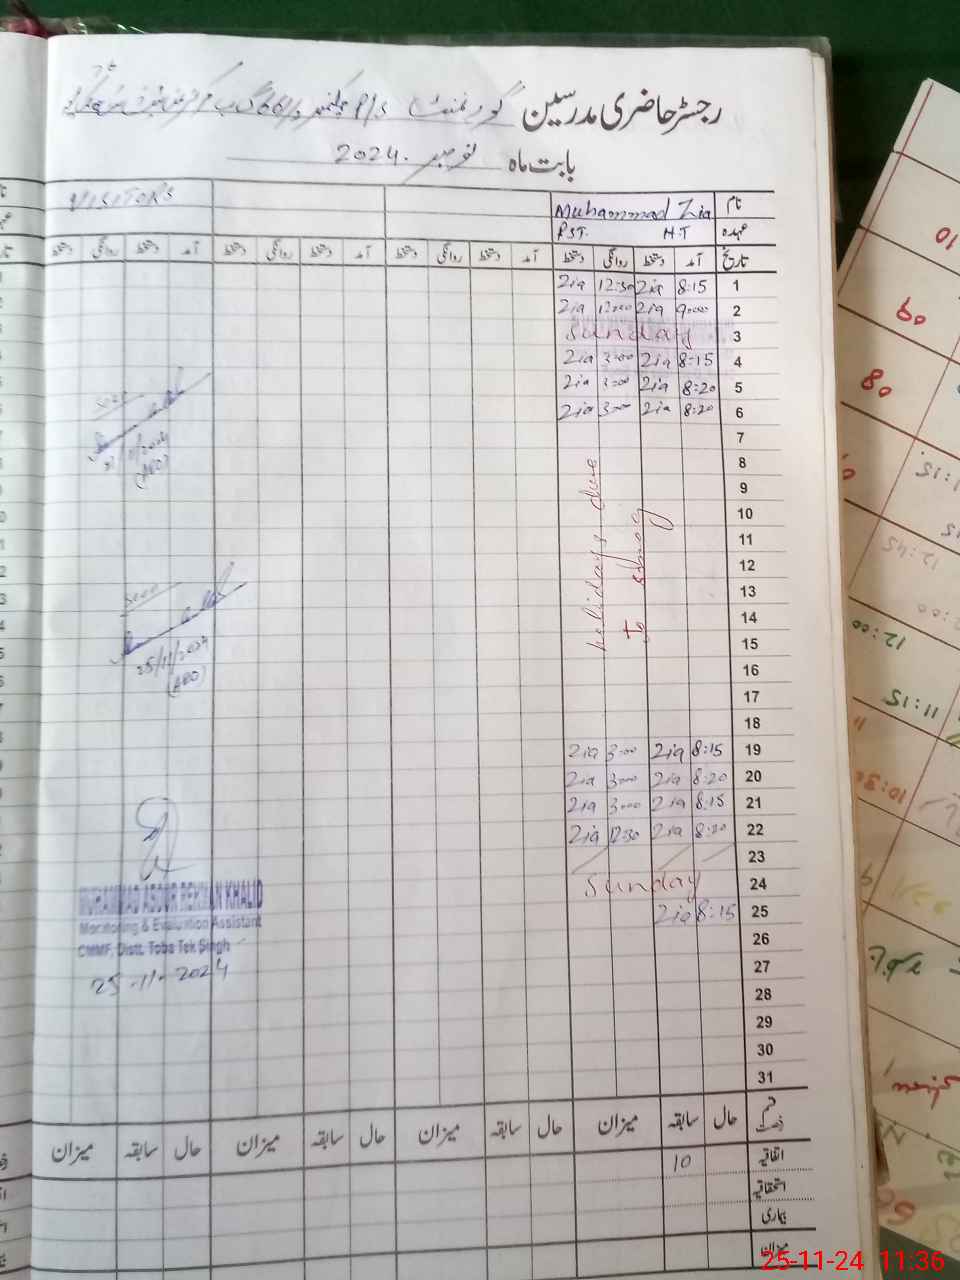 رجسٹر حاضری مدرسین گورنمنٹ P/S
بابت ماہ نومبر 2024.
نام Muhammad Zia VISITORS
عہدہ H.T PST.
تاریخ آمد دستخط روانگی دستخط آمد دستخط روانگی دستخط آمد دستخط روانگی دستخط آمد دستخط روانگی دستخط
1 8:15 Zia 12:30 Zia
2 9:00 Zia 12:00 Zia
3 Sunday
4 8:15 Zia 3:00 Zia
5 8:20 Zia 3:00 Zia
6 8:20 Zia 3:00 Zia
7
8
9
10
11
12
13
14
15
16
17
18
holidays due
to smog
19 8:15 Zia 3:00 Zia
20 8:20 Zia 3:00 Zia
21 8:15 Zia 3:00 Zia
22 8:20 Zia 12:30 Zia
23
24 Sunday
25 8:15 Zia
26
27
28
29
30
31
Seen
(AEO)
Seen
25/11/2024
(AEO)
MUHAMMAD ABDUR REHMAN KHALID
Monitoring & Evaluation Assistant
CMMF, Distt. Toba Tek Singh
25-11-2024
قسم رخصت حال سابقہ میزان حال سابقہ میزان حال سابقہ میزان حال سابقہ میزان
اتفاقیہ 10
استحقاقیہ
بیماری
میزان
10
09
08
11:15
12:45
12:00
11:15
10:30
25-11-24 11:36